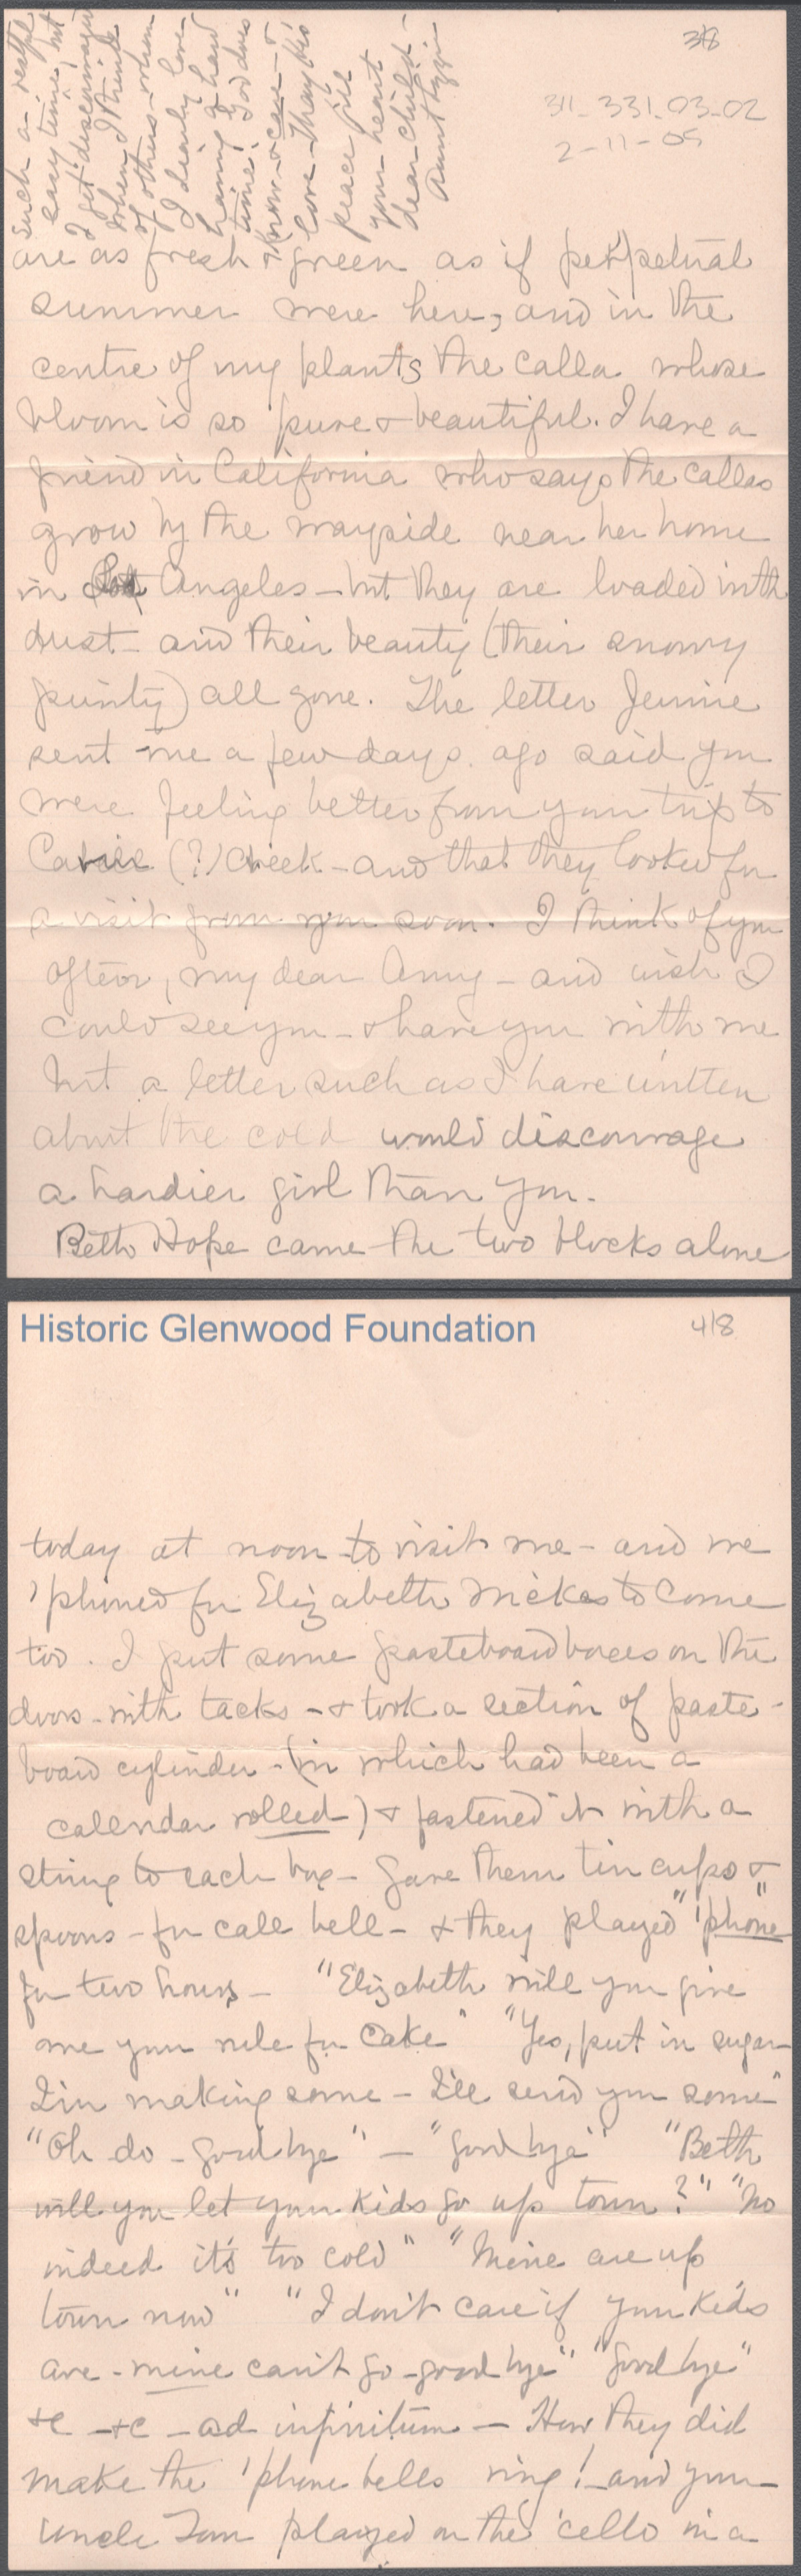 3/8
311-331-03-02
2-11-05
such a restful
easy time, but
I get discouraged
when I think
of others - whom
I dearly love
having a hard
time: God does
know - & care - &
love - May His
peace fill
your heart
dear child -
Aunt Lizzie
are as fresh & green as if perpetual
summer were here, and in the
centre of my plants the calla whose
bloom is so pure & beautiful. I have a
friend in California who says the callas
grow by the wayside near her home
in Los Angeles - but they are loaded with
dust - and their beauty (their snowy
purity) all gone. The letter Jennie
sent me a few days ago said you
were feeling better from your trip to
(?) Creek - and that they looked for
a visit from you soon. I think of you
often, my dear Amy - and wish I
could see you - & have you with me
but a letter such as I have written
about the cold would discourage
a hardier girl than you.
Beth Hope came the two blocks alone
Historic Glenwood Foundation
4/8
today at noon to visit me - and we
'phoned for Elizabeth to come
too. I put some pasteboard boxes on the
doors - with tacks - & took a section of paste-
board cylinder - (in which had been a
calendar rolled) & fastened it with a
string to each box - gave them tin cups &
spoons - for call bell - & they played "'phone"
for two hours - "Elizabeth will you give
me your rule for cake" "Yes, put in sugar
I'm making some - I'll send you some"
"Oh do - goodbye" - "goodbye" "Beth
will you let your kids go up town?" "No
indeed it's too cold" "Mine are up
town now" "I don't care if your kids
are - mine can't go - good bye" "Good bye"
&c - &c - ad infinitum - How they did
make the 'phone bells ring! - and your
Uncle Tom played on the 'cello in a